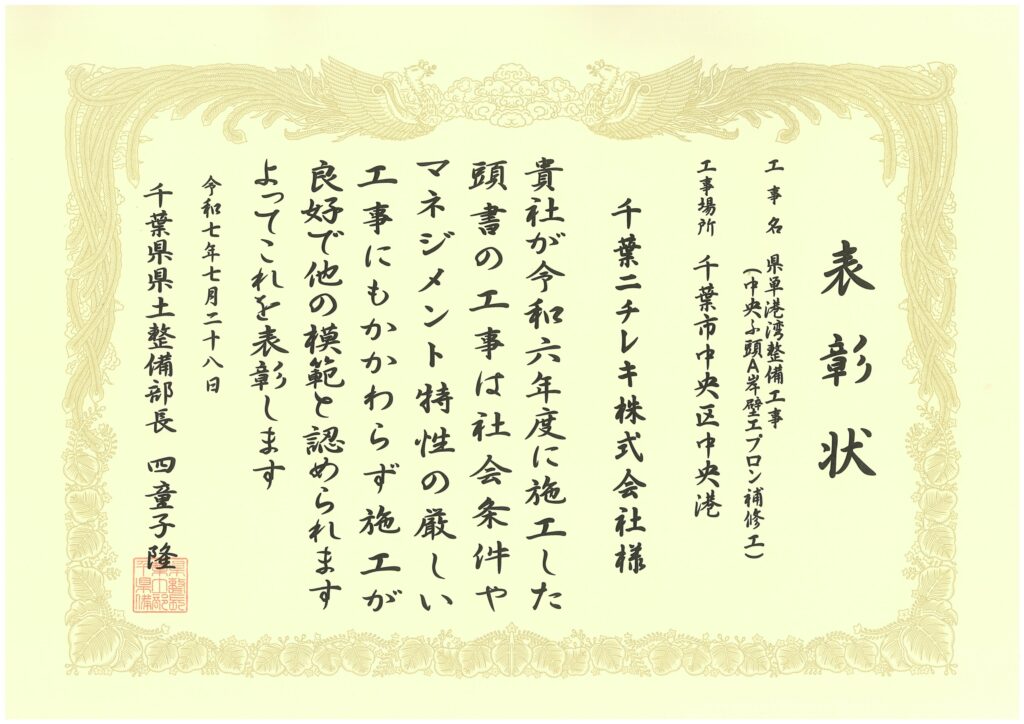 表彰状
工事名 県単港湾整備工事
(中央ふ頭A岸壁エプロン補修工)
工事場所 千葉市中央区中央港
千葉ニチレキ株式会社様
貴社が令和六年度に施工した
頭書の工事は社会条件や
マネジメント特性の厳しい
工事にもかかわらず施工が
良好で他の模範と認められます
よってこれを表彰します
令和七年七月二十八日
千葉県県土整備部長 四童子隆